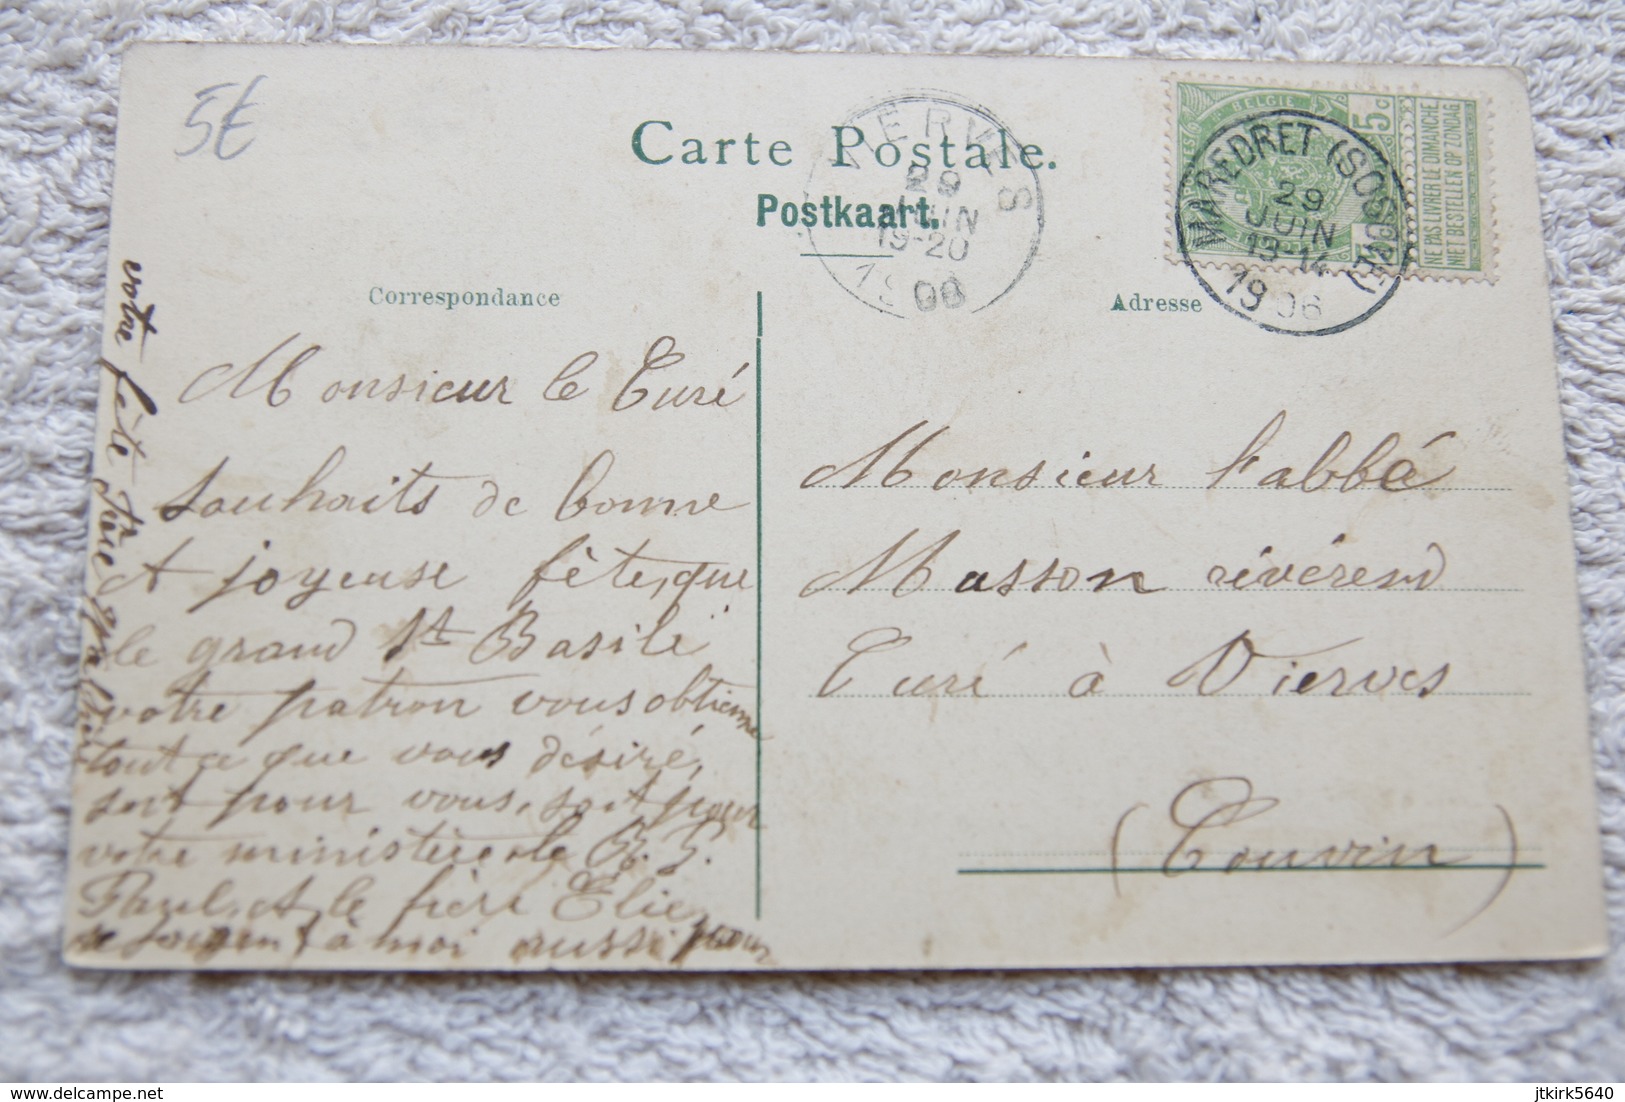 5€
Carte Postale.
Postkaart.
VIERVES
29
JUIN
19-20
1906
BELGIE
5c
NE PAS LIVRER LE DIMANCHE
NIET BESTELLEN OP ZONDAG
MAREDRET (SOSOYE)
29
JUIN
13-14
1906
Correspondance
Monsieur le Curé
souhaits de bonne
et joyeuse fête, que
le grand St Basile
votre patron vous obtienne
tout ce que vous désiré,
soit pour vous, soit pour
votre ministère, le R. P.
Paul, et le frère Elie
se joignent à moi aussi pour
votre fête
Adresse
Monsieur l'abbé
Masson révérend
Curé à Vierves
(Couvin)
delcampe.net
jtkirk5640